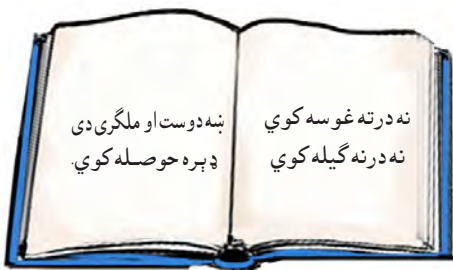 نه درته غوسه کوي
نه درنه گيله کوي
ښه دوست او ملگری دی
ډېره حوصله کوي.